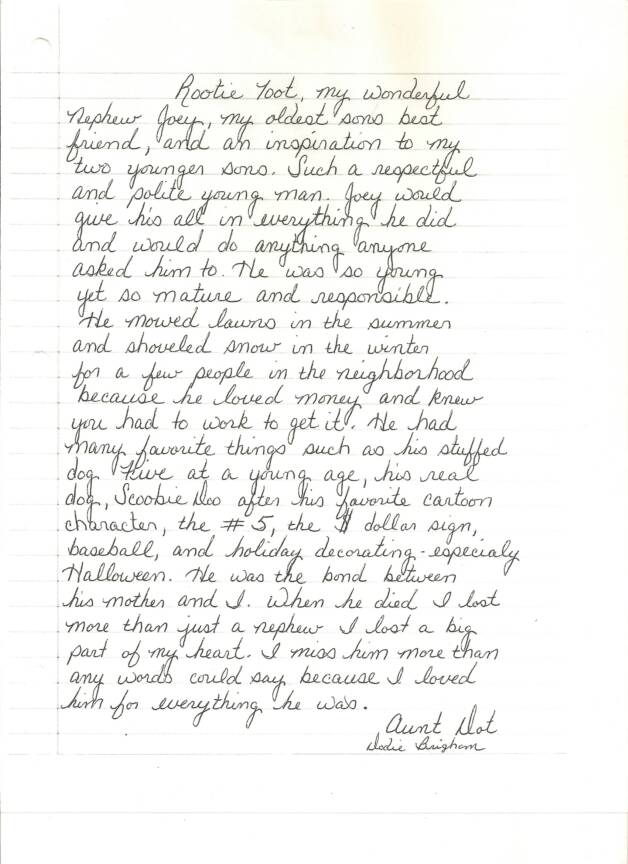 Rootie Toot, my wonderful
nephew Joey, my oldest sons best
friend, and an inspiration to my
two younger sons. Such a respectful
and polite young man. Joey would
give his all in everything he did
and would do anything anyone
asked him to. He was so young
yet so mature and responsible.
He mowed lawns in the summer
and shoveled snow in the winter
for a few people in the neighborhood
because he loved money and knew
you had to work to get it. He had
many favorite things such as his stuffed
dog Five at a young age, his real
dog, Scoobie Doo after his favorite cartoon
character, the #5, the $ dollar sign,
baseball, and holiday decorating - especialy
Halloween. He was the bond between
his mother and I. When he died I lost
more than just a nephew I lost a big
part of my heart. I miss him more than
any words could say because I loved
him for everything he was.
Aunt Dot
Dodie Brigham